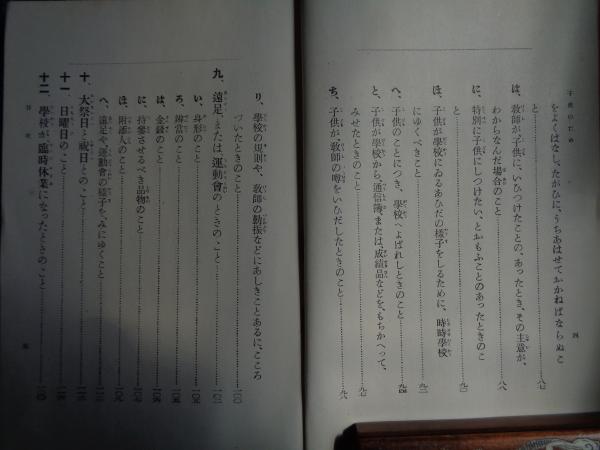 子供のため
四
をよくはなし、たがひに、うちあはせておかねばならぬこ
と……八七
は、教師が子供に、いひつけたことの、あったとき、その主意が、
わからなんだ場合のこと……八八
に、特別に子供にしつけたい、とおもふことのあったときのこ
と……九一
ほ、子供が學校にゐるあひだの樣子をしるために、時時學校
にゆくべきこと……九二
へ、子供のことにつき、學校へよばれしときのこと……九四
と、子供が學校から、通信簿、または、成績品などを、もちかへって、
みせたときのこと……九七
ち、子供が教師の噂をいひだしたときのこと……九八
り、學校の規則や、教師の動振などにあしきことあるに、こころ
づいたときのこと……一〇〇
九、遠足、または、運動會のときのこと……一〇二
い、身形のこと
ろ、辨當のこと
は、金錢のこと
に、持參させるべき品物のこと
ほ、附添人のこと
へ、遠足や、運動會の樣子を、みにゆくこと
十、大祭日と祝日とのこと
十一、日曜日のこと
十二、學校が臨時休業になったときのこと
目次